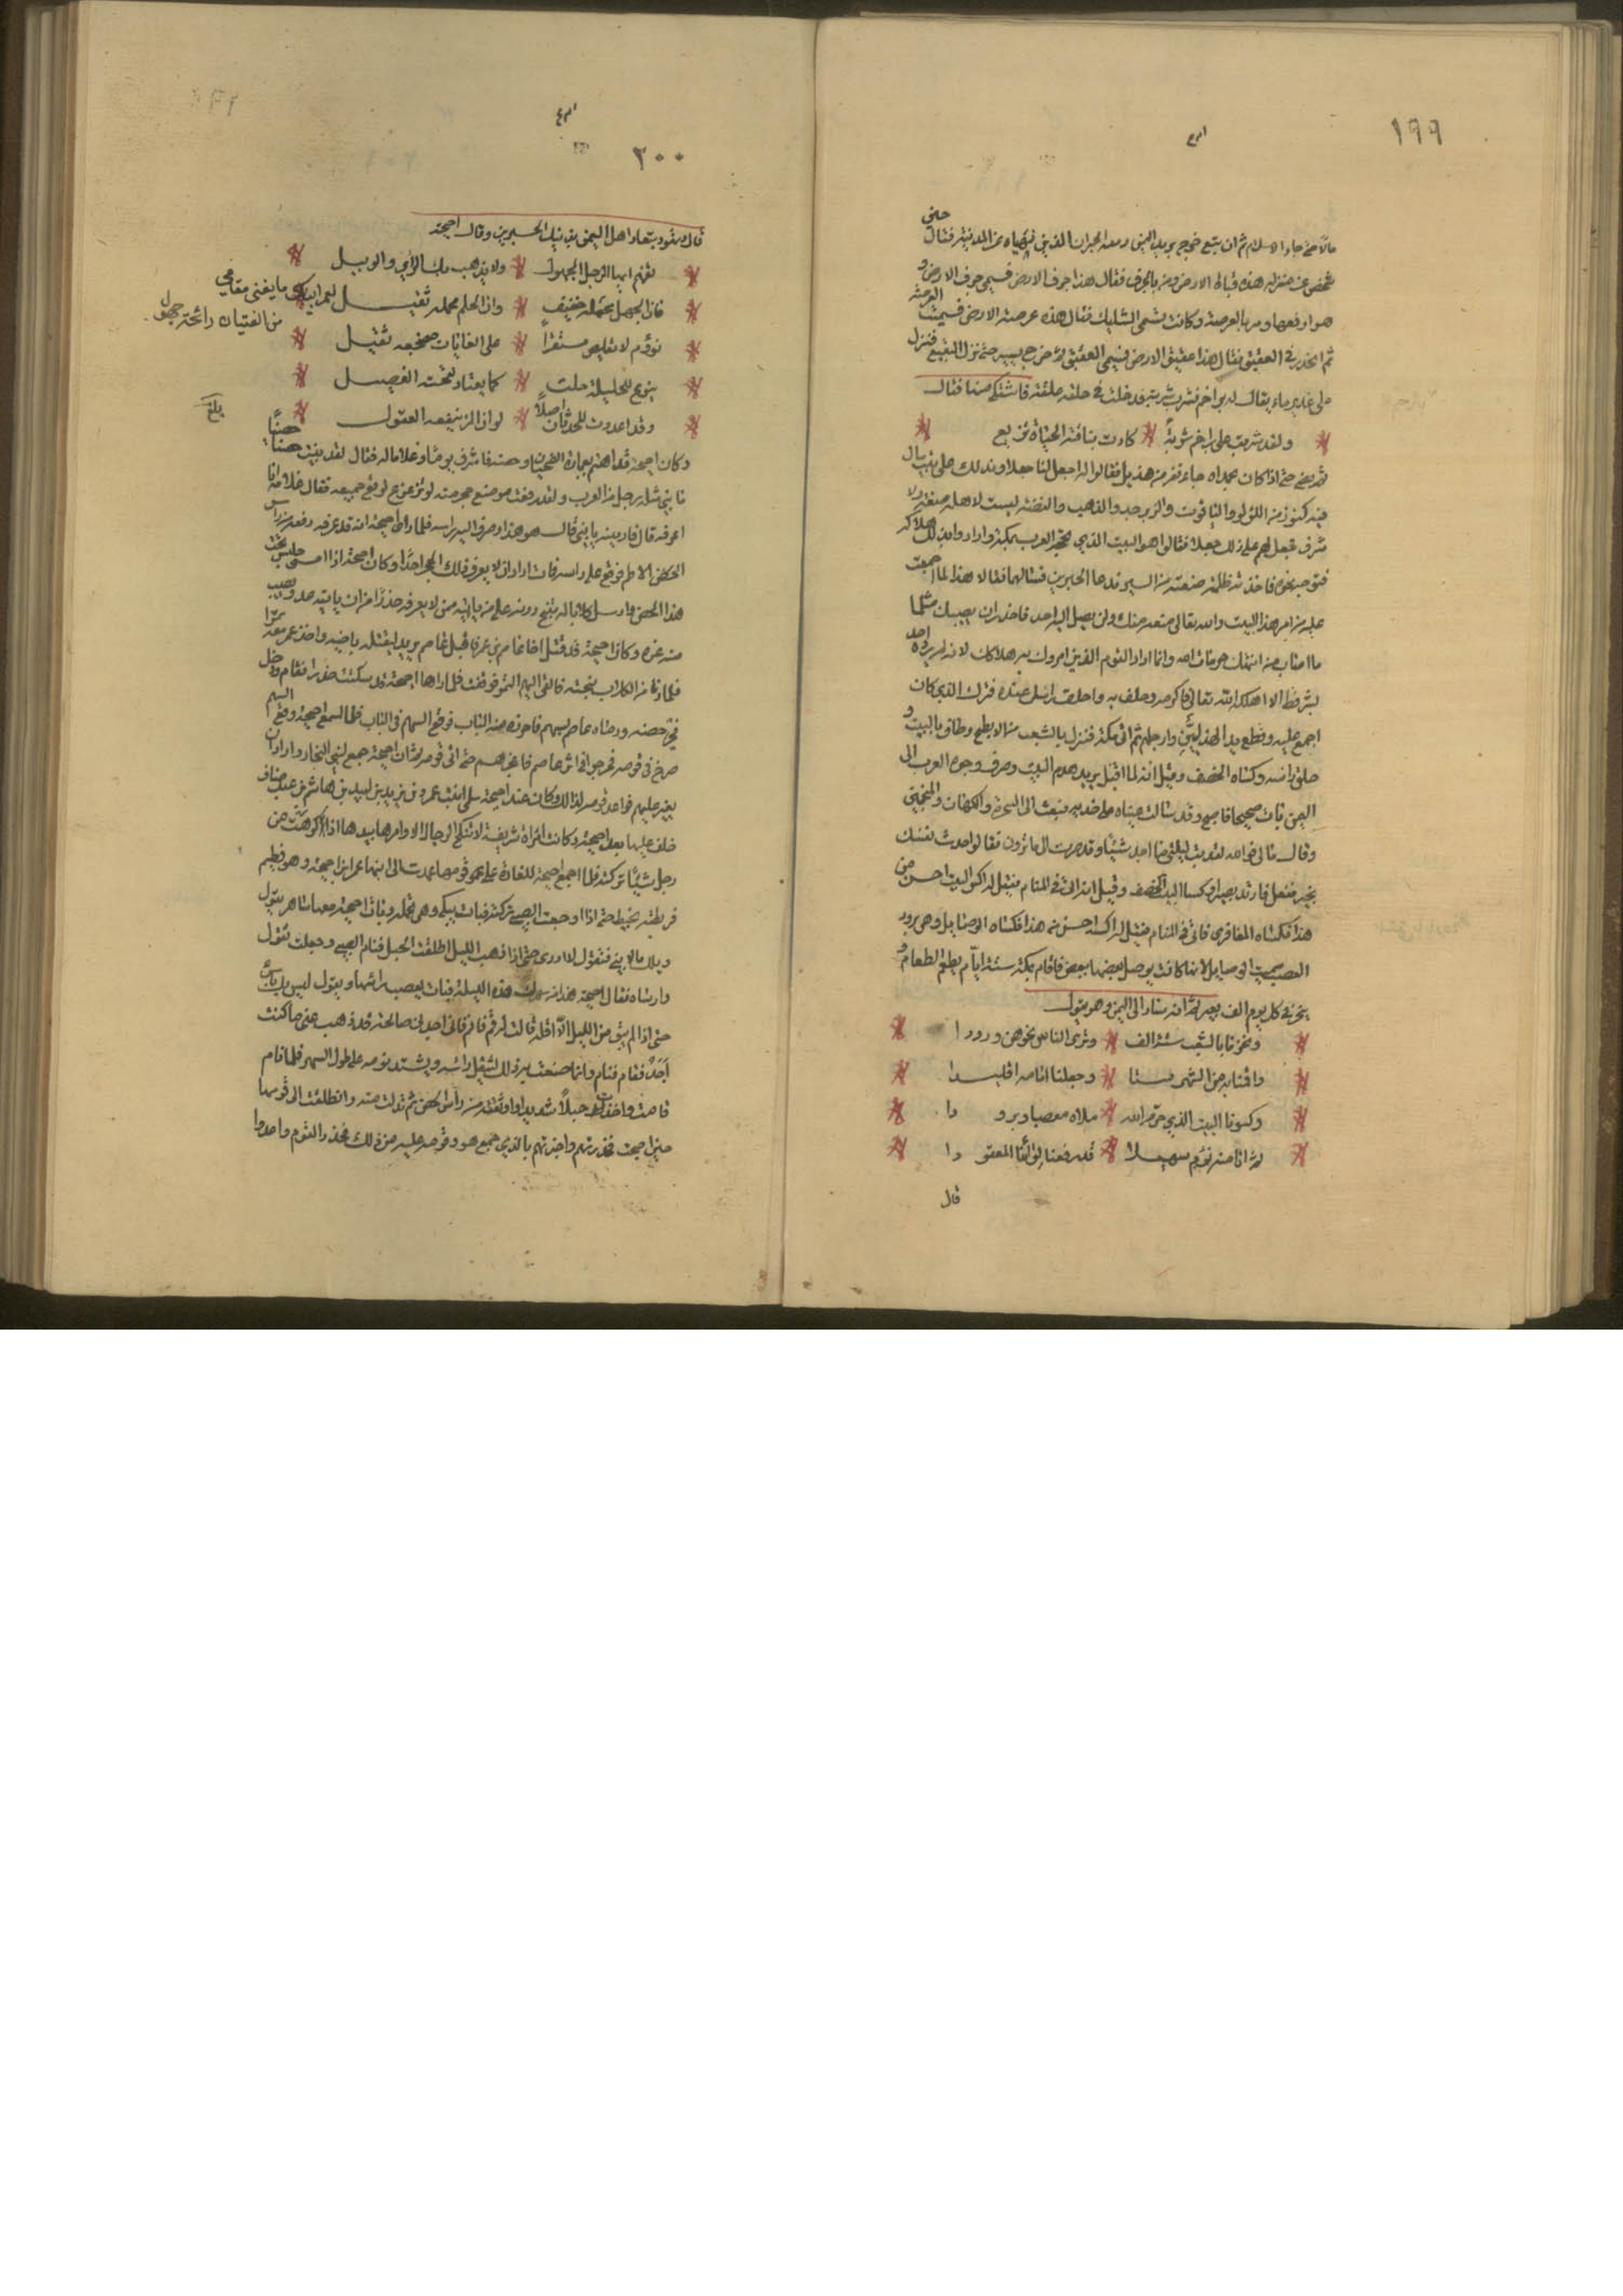 ١٩٩
مالا حتى جاء الاسلام ثم ان تبع خرج يريد اليمن ومعه الحبران اللذين نهياه عن المدينة فقال حين
شخص عن منزله هذه قباله الارض ومر بالجرف فقال هذا جرف الارض فسمي جرف الارض و
هو ارفعها ومر بالعرصة وكانت تسمى السليل فقال هذه عرصة الارض فسميت العرصة
ثم انحدر في العقيق فقال هذا عقيق الارض فسمي العقيق ثم خرج يسير حتى نزل البقيع فنزل
على غدير ماء يقال له براجم فشرب شربة فدخلت في حلقه علقة فاشتكى منها فقال
ولقد شربت على براجم شربة * كادت بباقية الحياة تذيع
ثم مضى حتى اذا كان بحمدان جاءه نفر من هذيل فقالوا له اجعل لنا جعلا وندلك على بيت مال
فيه كنوز من اللؤلؤ والياقوت والزبرجد والذهب والفضة ليست لاهله منعة ولا
شرف فجعل لهم على ذلك جعلا فقالوا هو البيت الذي تحجه العرب بمكة وارادوا بذلك هلاكه
فتوجه نحوه فاخذته ظلمة منعته من السير فدعا الحبرين فسالهما فقالا هذا لما اجمعت
عليه من امر هذا البيت والله تعالى منعه منك ولن يصل اليه احد فاحذر ان يصيبك مثل ما
ما اصاب من انتهك حرمات الله وانما اراد القوم الذين امروك به هلاكك لانه لم يرده احد
بشر قط الا اهلكه الله تعالى فاكرمه وطف به واحلق راسك عنده فترك الذي كان
اجمع عليه وقطع يد الهذليين وارجلهم ثم اتى مكة فنزل بالشعب من الابطح وطاف بالبيت و
حلق راسه وكساه الخصف وقيل انه لما اقبل يريد هدم البيت وصرف وجوه العرب الى
اليمن بات صحيحا فاصبح وقد سالت عيناه على خديه فبعث الى السحرة والكهان والمنجمين
وقال مالي فوالله لقد بت ليلتي ما اجد شيئا وقد صرت الى ما ترون فقالوا حدث نفسك
بخير ففعل فارتد بصيرا وكسا البيت الخصف وقيل انه اتى في المنام فقيل له اكس البيت احسن من
هذا فكساه المعافري فاتى في المنام فقيل له اكسه احسن من هذا فكساه الوصايل وهي برود
العصب سميت الوصايل لانها كانت يوصل بعضها ببعض فاقام بمكة ستة ايام يطعم الطعام و
ينحر في كل يوم الف بعير ثم انه سار الى اليمن وهو يقول
ونحرنا بالشعب ستة الف * وترى الناس نحوهن ورودا
واقمنا به من الشهر ستا * وجعلنا لبابه اقليدا
وكسونا البيت الذي حرم الله * ملاء معصبا وبرودا
ثم ابنا منه نؤم سهيلا * قد رفعنا لواءنا المعقودا
قال
٢٠٠
قال وتهود بتعاد اهل اليمن بذينك الحبرين وقال احيحة
تفهم ايها الرجل الجهول * ولا يذهب بك الرأي الوبيل
فان الجهل محمله خفيف * وان الحلم محمله ثقيل
لعمر ابيك ما يغني مقامي
من الفتيان رائحة جهول
نؤوم لا يقلص مستقرا * على الغايات مضجعه ثقيل
ينوع للحليلة حلت * كما يعتاد لقحته الفصيل
وقد اعددت للحدثان اصلا * لو ان المرء ينفعه العقول
بلغ
وكان احيحة قد اهتم بعمارة الضحيان وحصنه فاشرف يوما وغلاما له فقال لقد بنيت حصنا
ما بنى مثله رجل من العرب ولقد رفعت موضع حجر منه لو نزع نزع لوقع جميعه فقال غلامه انا
اعرفه قال فارنيه يا بني قال هو هذا وصرف اليه راسه فلما راى احيحة انه قد عرفه دفعه من راس
الحصن الاطم فوقع على راسه فمات ارادة ان لا يعرف ذلك الحجر احدا وكان احيحة اذا امسى جلس تحت
هذا الحصن وارسل كلابا له تنبح دونه على من ياتيه ممن لا يعرفه حذرا من ان ياتيه عدو يصيب
منه غرة وكان احيحة قد قتل اخا عاصم بن عمرو فاقبل عاصم يريد ليقتله باخيه واخذ معه تمرا
فلما دنا من الكلاب نبحته فالقى اليهم التمر فوقفت فلما راها احيحة قد سكتت حذر فقام ودخل
في حصنه ورماه عاصم بسهم فاحرزه منه الباب فوقع السهم في الباب فلما سمع احيحة وقع السهم
صرخ في قومه فخرجوا في اثر عاصم فاعجزهم حتى اتى قومه ثم ان احيحة جمع لبني النجار واراد ان
يغير عليهم فواعد قومه لذلك وكان عند احيحة سلمى ابنت عمرو بن زيد بن لبيد بن هاشم بن عبد مناف
خلف عليها بعد احيحة وكانت امراة شريفة لا تنكح الرجال الا وامرها بيدها اذا كرهت من
رجل شيئا تركته فلما اجمع احيحة للغارة على قومها عمدت الى ابنها عمرو ابن احيحة وهو فطيم
فربطته بخيط حتى اذا اوجعت الصبي تركته فبات يبكي وهي تحمله وبات احيحة معها ساهر يقول
ويلك ما لابني فتقول لا ادري حتى اذا ذهب الليل اطلقت الحبل فنام الصبي وجعلت تقول
واراساه فقال احيحة هذا من سهرك هذه الليلة فبات يعصب راسها ويقول ليس بك باس
حتى اذا لم يبق من الليل الا اقله قالت له قم فنم فاني اجدني صالحة قد ذهب عني ما كنت
اجد فقام فنام وانما صنعت به ذلك ليثقل راسه ويشتد نومه على طول السهر فلما نام
قامت واخذت حبلا شديدا واوثقته من رأس الحصن ثم تدلت منه وانطلقت الى قومها
حين اصبحت فنذرتهم واخبرتهم بالذي جمع هو وقومه عليه من ذلك فحذر القوم واعدوا